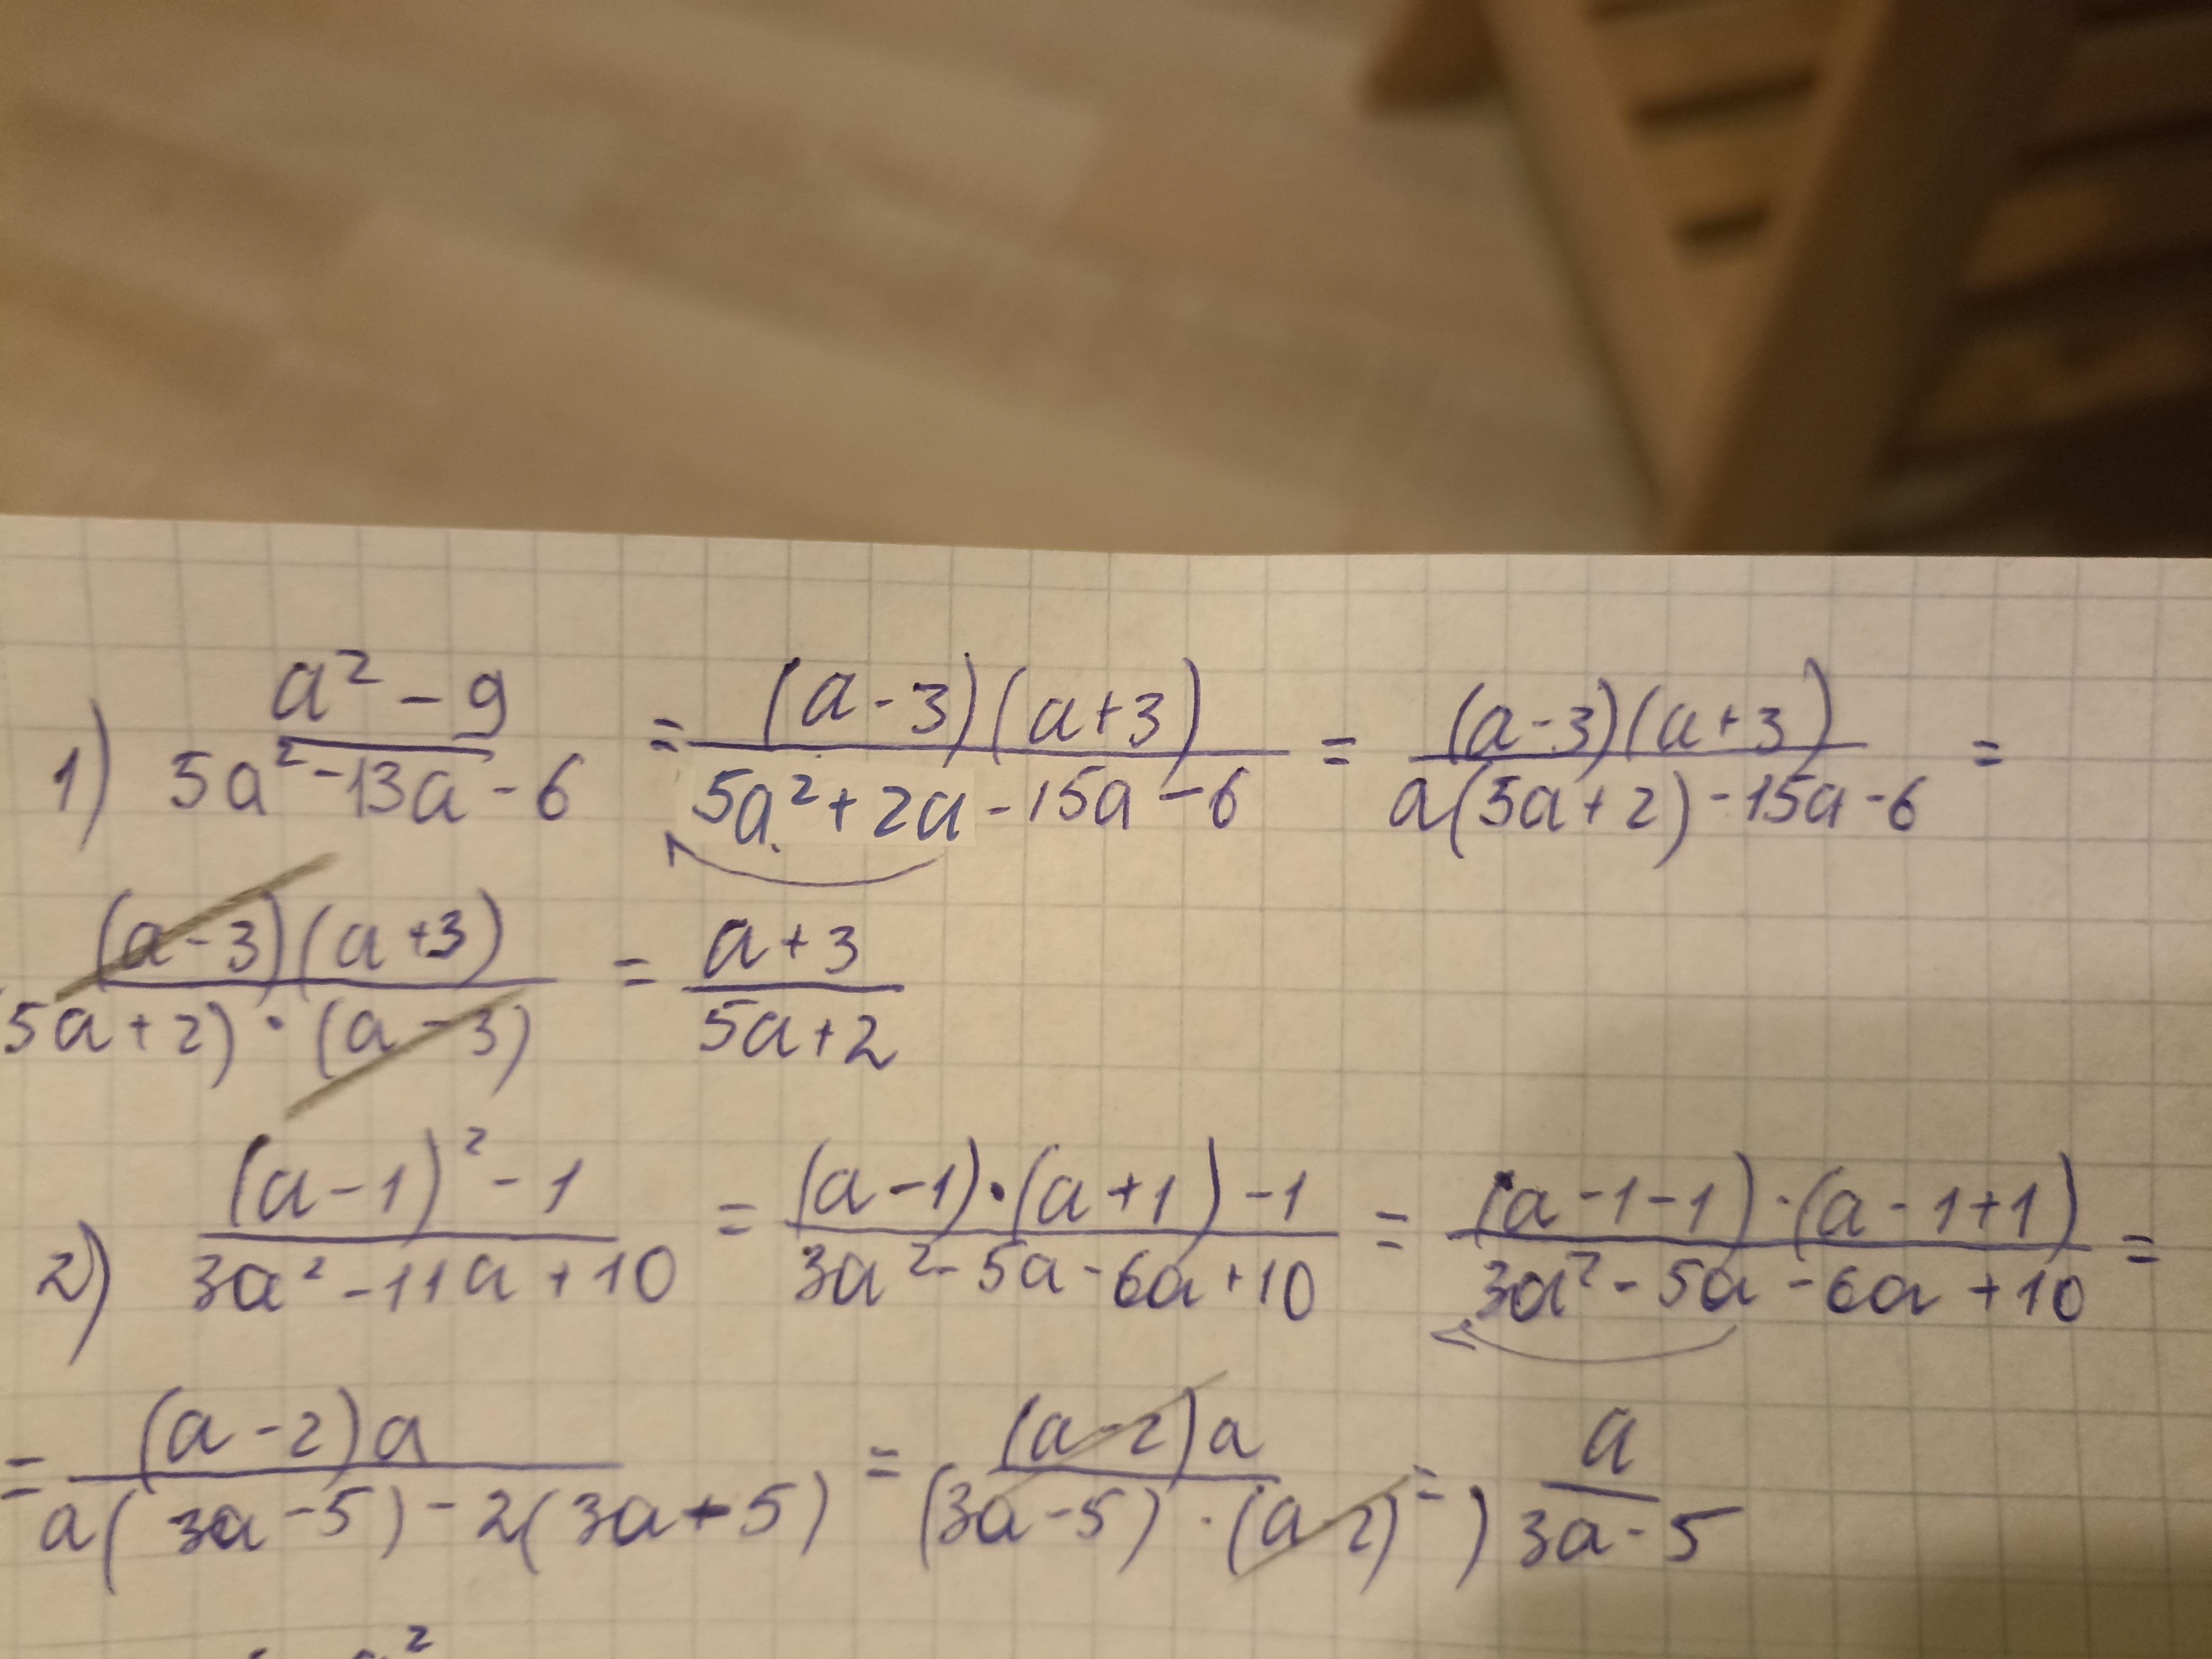 1) a² - 9 / 5a² - 13a - 6 = (a - 3)(a + 3) / 5a² + 2a - 15a - 6 = (a - 3)(a + 3) / a(5a + 2) - 15a - 6 =
(a - 3)(a + 3) / 5a + 2) · (a - 3) = a + 3 / 5a + 2
2) (a - 1)² - 1 / 3a² - 11a + 10 = (a - 1) · (a + 1) - 1 / 3a² - 5a - 6a + 10 = (a - 1 - 1) · (a - 1 + 1) / 3a² - 5a - 6a + 10 =
= (a - 2)a / a(3a - 5) - 2(3a - 5) = (a - 2)a / (3a - 5) · (a - 2) = ) a / 3a - 5